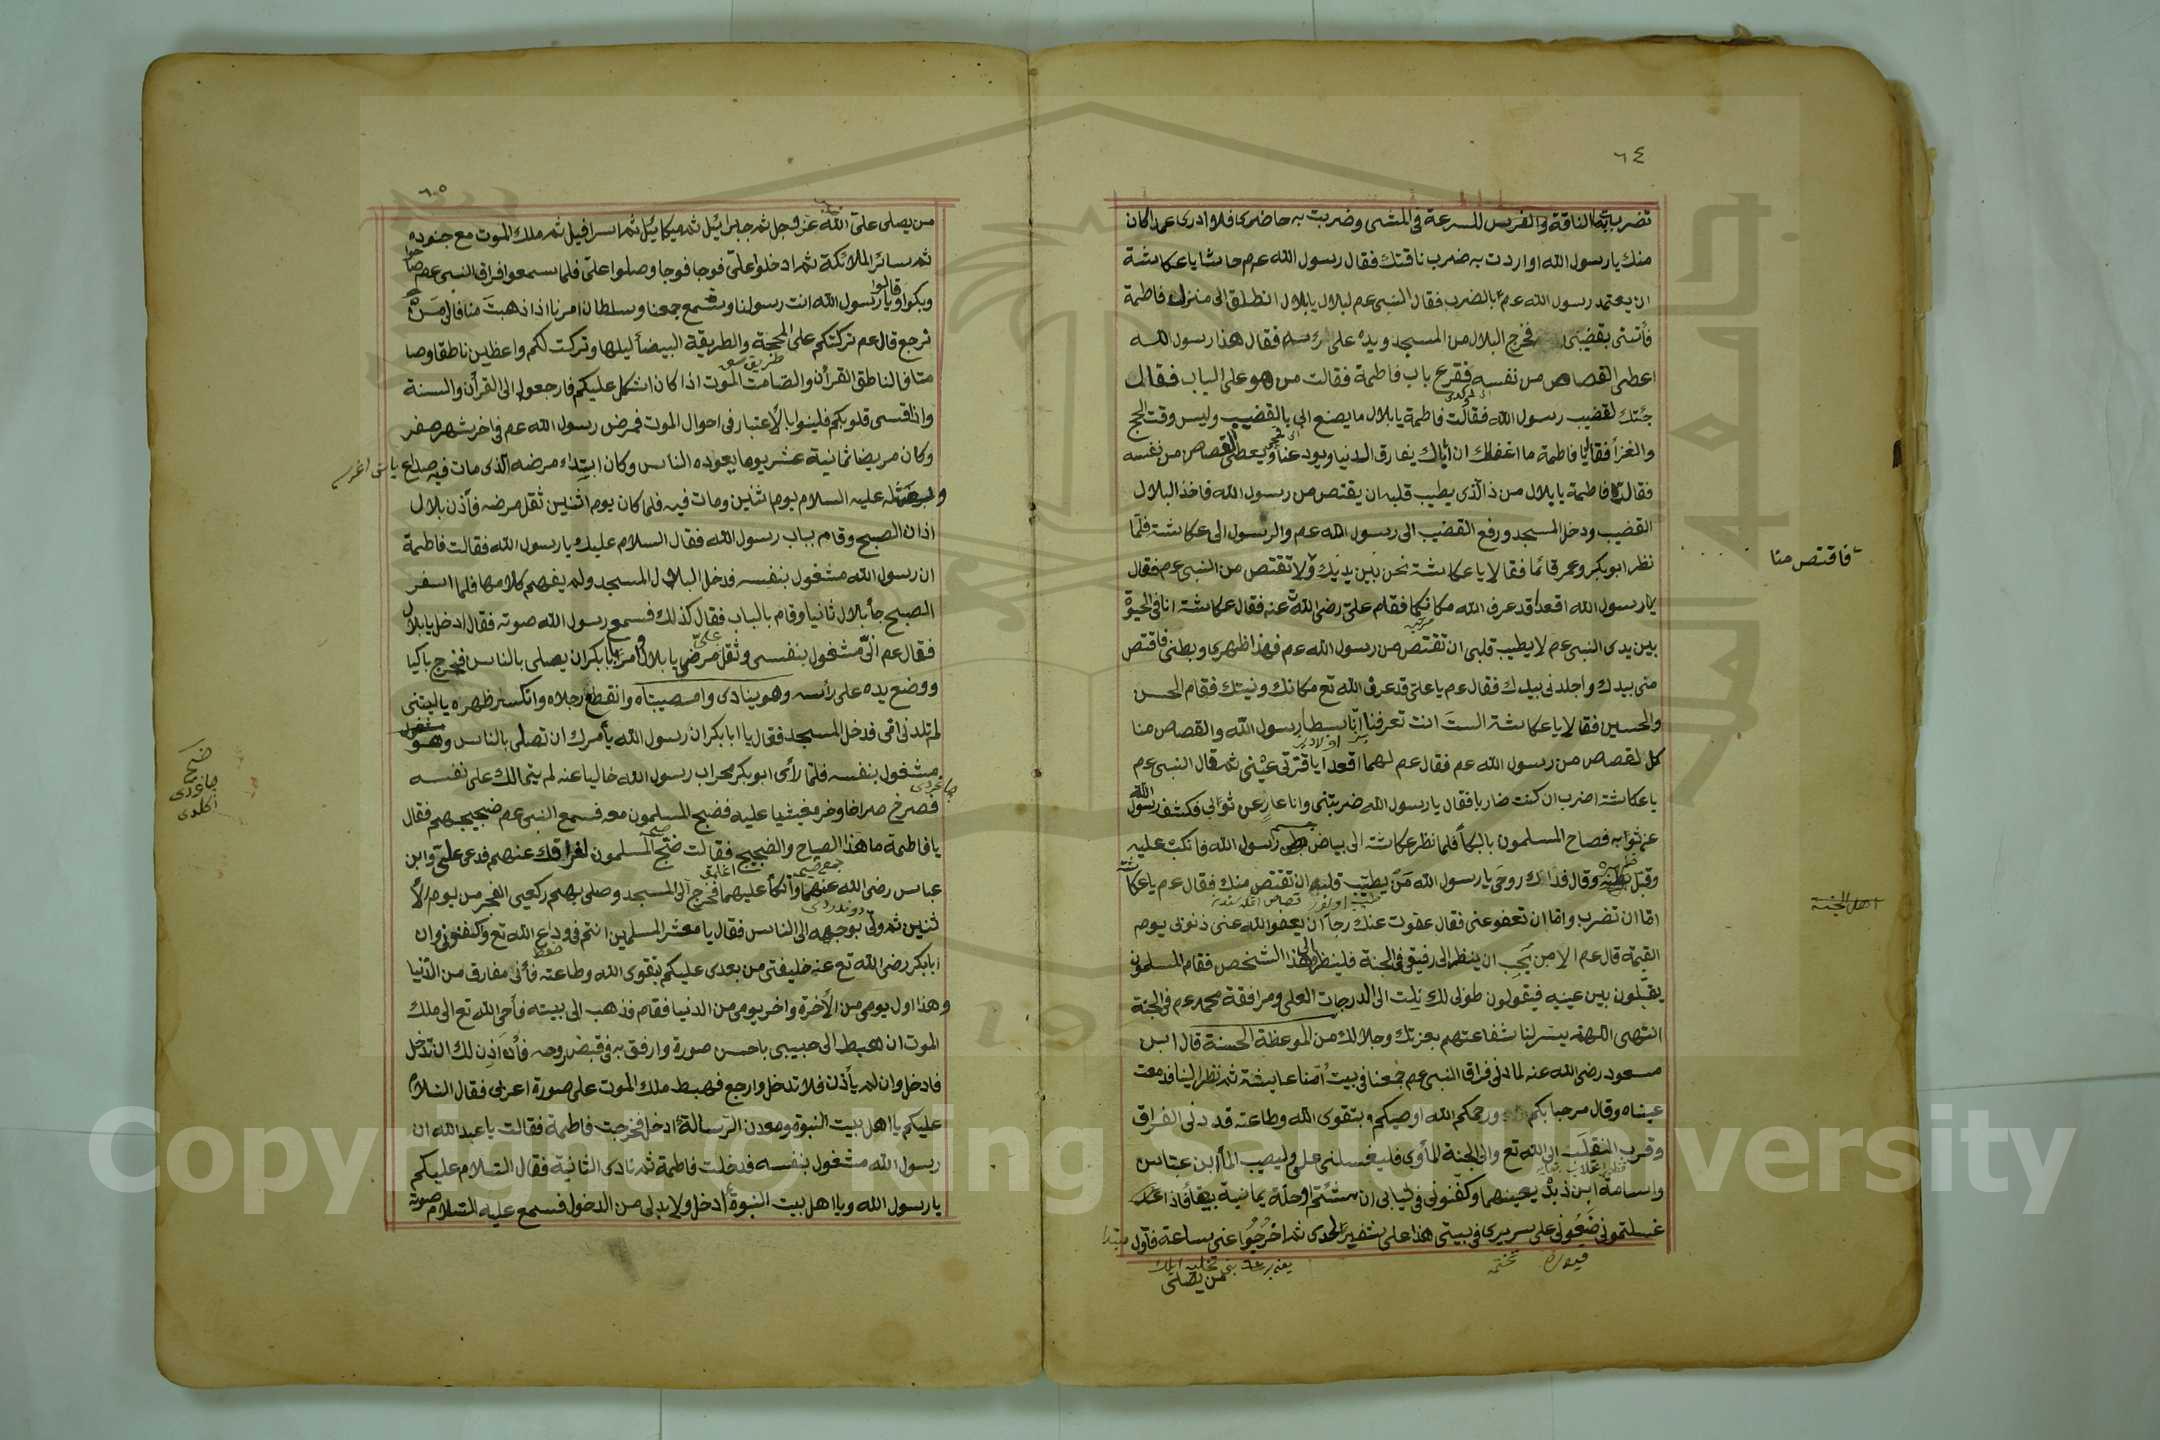 ٦٤
تضرب به الناقة والفرس للسرعة فى المشى وضربت به حاضرى فلا ادرى عمدا كان
منك يا رسول الله او اردت به ضرب ناقتك فقال رسول الله عم حاشا يا عكاشة
ان يعتمد رسول الله عم بالضرب فقال النبى عم لبلال يا بلال انطلق الى منزل فاطمة
فأتنى بقضيبى فخرج البلال من المسجد ويده على رأسه فقال هذا رسول الله
اعطى القصاص من نفسه فقرع باب فاطمة فقالت من هو على الباب فقال
جئتك لقضيب رسول الله فقالت فاطمة يا بلال ما يصنع ابى بالقضيب وليس وقت الحج
والغزأ فقال يا فاطمة ما اغفلك ان اباك يفارق الدنيا ويودعنا ويعطى القصاص من نفسه
فقالت فاطمة يا بلال من ذا الذى يطيب قلبه ان يقتص من رسول الله فاخذ البلال
القضيب ودخل المسجد ورفع القضيب الى رسول الله عم والرسول الى عكاشة فلما
نظر ابو بكر وعمر قاما فقالا يا عكاشة نحن بين يديك ولا تقتص من النبى عم فقال
فاقتص منا
يا رسول الله اقعدا قد عرف الله مكانكما فقام على رضى الله عنه فقال عكاشة انا فى الحيوة
بين يدى النبى عم لا يطيب قلبى ان تقتص من رسول الله عم فهذا ظهرى وبطنى فاقتص
منى بيدك واجلدنى بيدك فقال عم يا على قد عرف الله تع مكانك ونيتك فقام الحسن
والحسين فقالا يا عكاشة الست انت تعرفنا انا سبطا رسول الله والقصاص منا
كل لقصاص من رسول الله عم فقال عم لهما اقعدا يا قرتى عينى ثم قال النبى عم
يا عكاشة اضرب ان كنت ضاربا فقال يا رسول الله ضربتنى وانا عار عن ثوابى فكشف رسول الله
عن ثوابه فصاح المسلمون بالبكأ فلما نظر عكاشة الى بياض جسم رسول الله فانكب عليه
وقبل وقال فداك روحى يا رسول الله من يطيب قلبه ان تقتص منك فقال عم يا عكاشة
اما ان تضرب واما ان تعفو عنى فقال عفوت عنك رجاأ ان يعفو الله عنى ذنوبى يوم
اهل الجنة
القيمة قال عم الا من يحب ان ينظر الى رفيقى فى الجنة فلينظر الى هذا الشخص فقام المسلمون
يقبلون بين عينيه فيقولون طوبى لك نلت الى الدرجات العلى ومرافقة محمد عم فى الجنة
انتهى اللهم يسر لنا شفاعتهم بعزتك وجلالك من الموعظة الحسنة قال ابن
مسعود رضى الله عنه لما دنى فراق النبى عم جمعنا فى بيت امنا عايشة ثم نظر الينا فدمعت
عيناه وقال مرحبا بكم ورحمكم الله اوصيكم بتقوى الله وطاعته قد دنى الفراق
وقرب المنقلب الى الله تع والى الجنة المأوى فليغسلنى على وليصب المأ ابن عباس
واسامة ابن زيد يعينهما وكفنونى فى ثيابى ان شئتم او حلة يمانية بيضأ فاذا
غسلتمونى ضعونى على سريرى فى بيتى هذا على شفير لحدى ثم اخرجوا عنى ساعة فاول
من يصلى
٦٥
من يصلى على الله عز وجل ثم جبرائيل ثم ميكائيل ثم اسرافيل ثم ملك الموت مع جنوده
ثم سائر الملائكة ثم ادخلوا على فوجا فوجا وصلوا على فلما سمعوا فراق النبى عم صاحوا
وبكوا وقالوا يا رسول الله انت رسولنا وشمع جمعنا وسلطان امرنا اذا ذهبت منا فالى من
نرجع قال عم تركتكم على المحجة والطريقة البيضأ ليلها وتركت لكم واعظين ناطقا وصا
متا فالناطق القرأن والصامت الموت اذا كان اشكل عليكم فارجعوا الى القرأن والسنة
واذا قسى قلوبكم فلينوا بالاعتبار فى احوال الموت فمرض رسول الله عم فى اخر شهر صفر
وكان مريضا ثمانية عشر يوما يعوده الناس وكان ابتداء مرضه الذى مات فيه صداع
عليه السلام يوم اثنين ومات فيه فلما كان يوم اثنين ثقل مرضه فاذن بلال
اذان الصبح وقام بباب رسول الله فقال السلام عليك يا رسول الله فقالت فاطمة
ان رسول الله مشغول بنفسه فدخل البلال المسجد ولم يفهم كلامها فلما اسفر
الصبح جأ بلال ثانيا وقام بالباب فقال كذلك فسمع رسول الله صوته فقال ادخل يا بلال
فقال عم انى مشغول بنفسى وثقل على مرضى يا بلال وأمر ابا بكر ان يصلى بالناس فخرج باكيا
ووضع يده على رأسه وهو ينادى وامصيبتاه وانقطع رجلاه وانكسر ظهره يا ليتنى
لم تلدنى امى فدخل المسجد فقال يا ابا بكر ان رسول الله يأمرك ان تصلى بالناس وهو
مشغول بنفسه فلما رأى ابو بكر محراب رسول الله خاليا عنه لم يتمالك على نفسه
فصرخ صراخا وخر مغشيا عليه فضج المسلمون معه فسمع النبى عم ضجيجهم فقال
يا فاطمة ما هذا الصياح والضجيج فقالت ضج المسلمون لفراقك عنهم فدعى على وابن
عباس رضى الله عنهما واتكأ عليهما فخرج الى المسجد وصلى بهم ركعتى الفجر من يوم الأ
ثنين ثم ولى بوجهه الى الناس فقال يا معشر المسلمين انتم فى وداع الله تع وكنفه وان
ابا بكر رضى الله تع عنه خليفتى من بعدى عليكم بتقوى الله وطاعته فأنى مفارق من الدنيا
وهذا اول يومى من الأخرة واخر يومى من الدنيا فقام فذهب الى بيته فأحى الله تع الى ملك
الموت ان اهبط الى حبيبى باحسن صورة وارفق به فى قبض روحه فأن اذن لك ان تدخل
فادخل وان لم يأذن فلا تدخل وارجع فهبط ملك الموت على صورة اعرابى فقال السلام
عليكم يا اهل بيت النبوة ومعدن الرسالة أدخل فخرجت فاطمة فقالت يا عبد الله ان
رسول الله مشغول بنفسه فدخلت فاطمة ثم نادى الثانية فقال السلام عليكم
يا رسول الله ويا اهل بيت النبوة أدخل ولا بد لى من الدخول فسمع عليه السلام صوته
Copyright © King Saud University